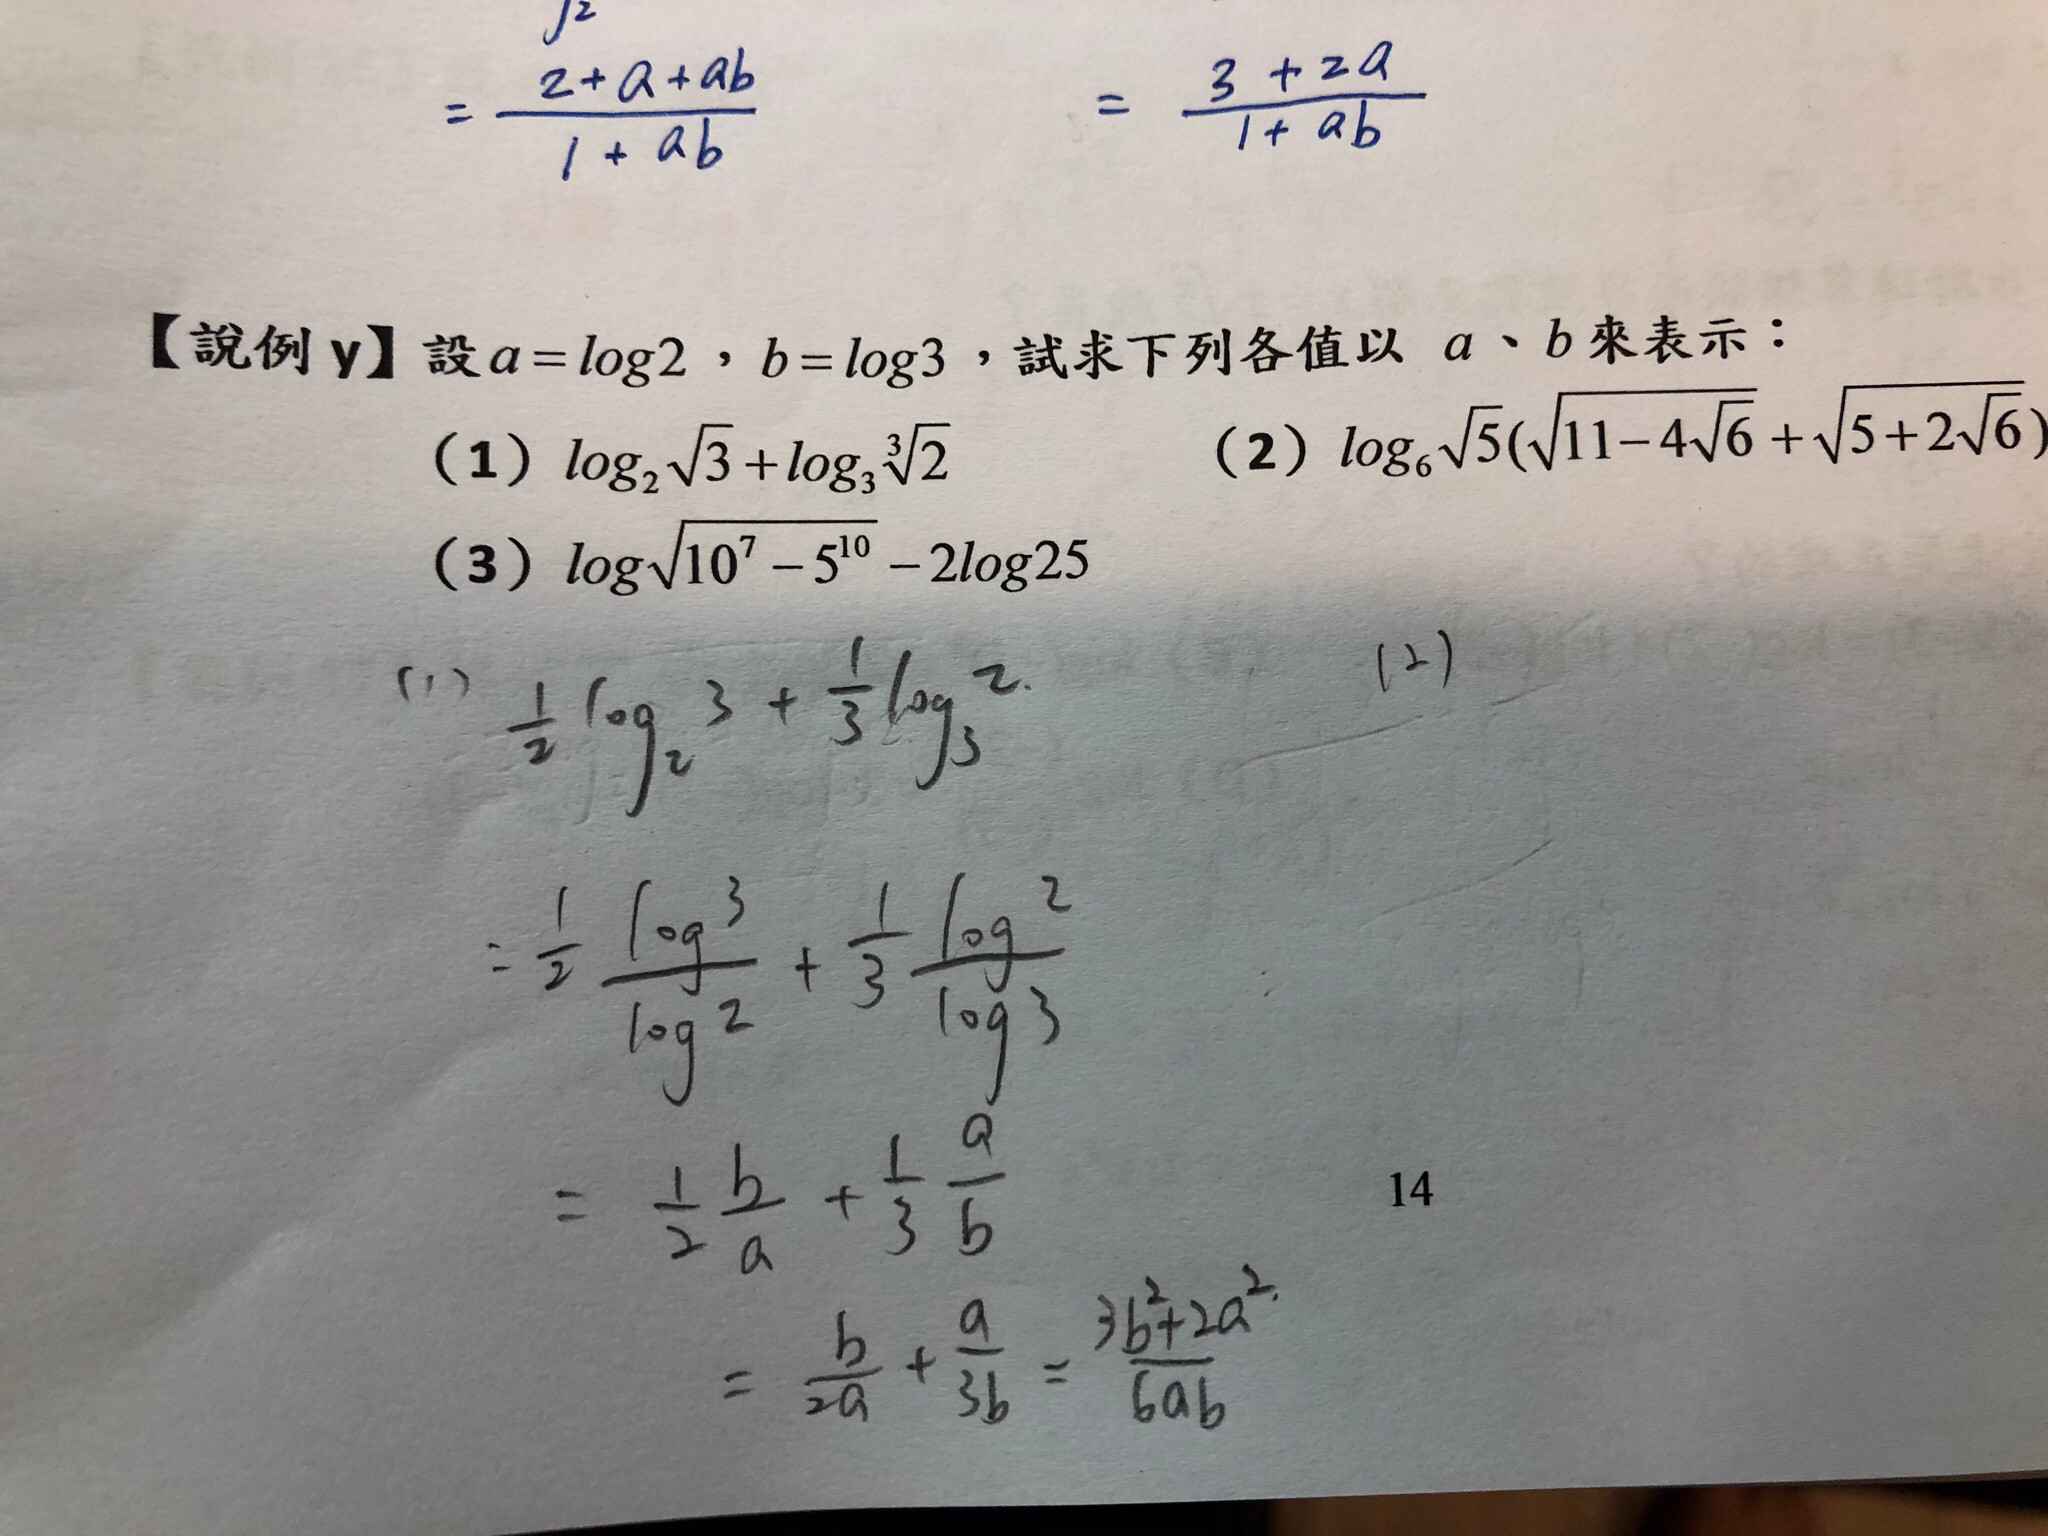 = (2+a+ab)/(1+ab) = (3+2a)/(1+ab)
【說例 y】設 a=log2，b=log3，試求下列各值以 a、b來表示：
（1）log₂√3+log₃∛2 （2）log₆√5(√(11−4√6)+√(5+2√6))
（3）log√(10⁷−5¹⁰)−2log25
(1) 1/2 log₂3 + 1/3 log₃2. (2)
= 1/2 log3/log2 + 1/3 log2/log3
= 1/2 b/a + 1/3 a/b
14
= b/2a + a/3b = (3b²+2a²)/6ab